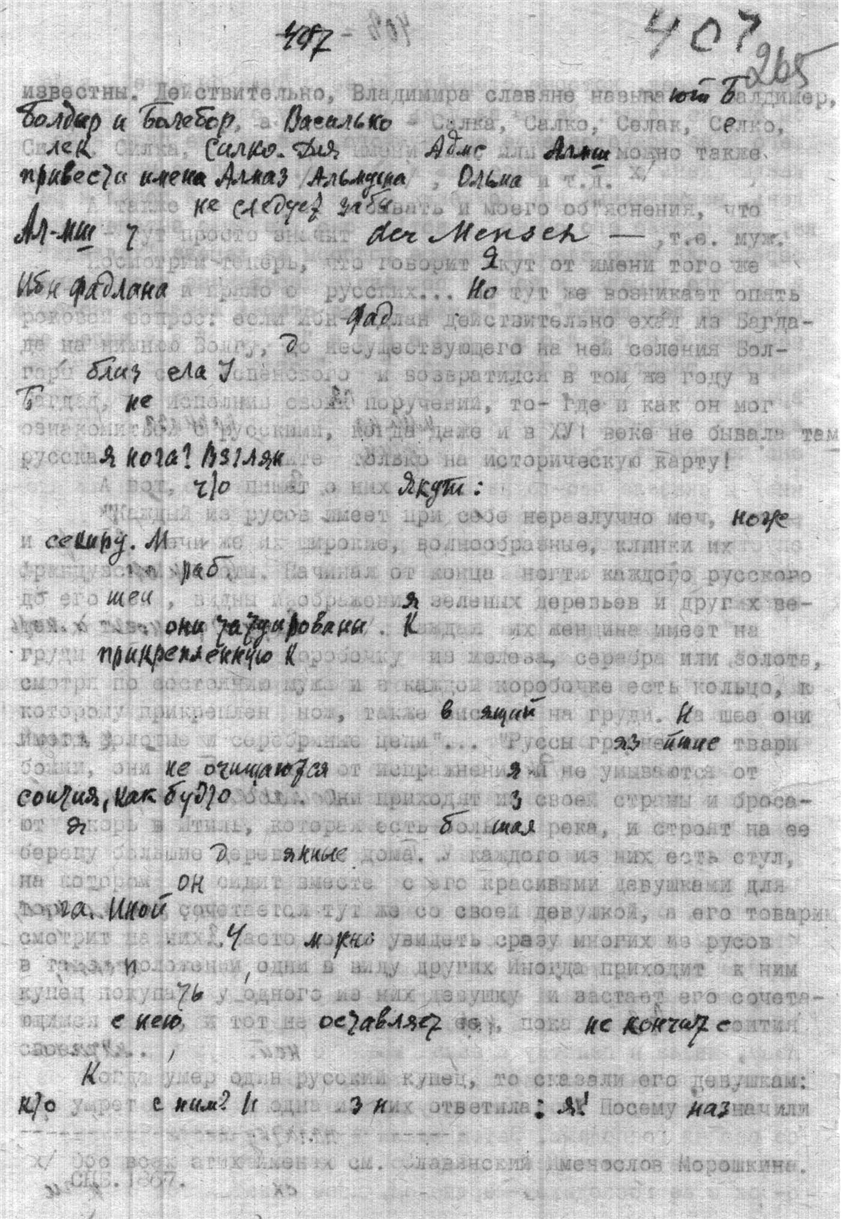 407
407
265
известны. Действительно, Владимира славяне называют Балдимер,
Болдыр и Болебор, а Василько - Салка, Салко, Селак, Селко,
Силка, Силко. Для имени Адмс или Алмш можно также
привести имена Алмаз /Альмуша/, Ольма и т.д. х/
А также не следует забывать и моего объяснения, что
Ал-мш тут просто значит der Mensch — , т.е. муж.
Посмотрим теперь, что говорит Якут от имени того же
Ибн Фадлана и прямо о русских... Но тут же возникает опять
роковой вопрос: если Ибн Фадлан действительно ехал из Багда-
да на нижнюю Волгу, до несуществующего на ней селения Бол-
гары близ села Успенского и возвратился в том же году в
Багдад, не исполнив своих поручений, то- где и как он мог
ознакомиться с русскими, когда даже и в ХУ1 веке не бывала там
русская нога? Взгляните только на историческую карту!
А вот, что пишет о них Якут:
"Каждый из русов имеет при себе неразлучно меч, нож
и секиру. Мечи же их широкие, волнообразные, клинки их
французской работы. Начиная от конца ногтя каждого русского
до его шеи, видны изображения зеленых деревьев и других ве-
они татуированы. Каждая их женщина имеет на
груди прикрепленную коробочку из железа, серебра или золота,
смотря по состоянию мужа и в каждой коробочке есть кольцо, к
которому прикреплен нож, также висящий на груди. На шее они
имеют золотые и серебряные цепи"... "Руссы грязнейшие твари
божии, они не очищаются от испражнения и не умываются от
соития, как будто ... Они приходят из своей страны и броса-
ют якорь в Итиль, которая есть большая река, и строят на ее
берегу большие деревянные дома. У каждого из них есть стул,
на котором он сидит вместе с его красивыми девушками для
торга. Иной сочетается тут же со своей девушкой, а его товарищ
смотрит на них. Часто можно увидеть сразу многих из русов
в таком положении, одни в виду других Иногда приходит к ним
купец покупать у одного из них девушку и застает его сочета-
ющимся с нею, и тот не оставляет ее, пока не кончит соития
Когда умер один русский купец, то сказали его девушкам:
кто умрет с ним? И одна из них ответила: я! Посему назначили
х/ Обо всех этих именах см. Славянский Именослов Морошкина.
СПБ. 1867.